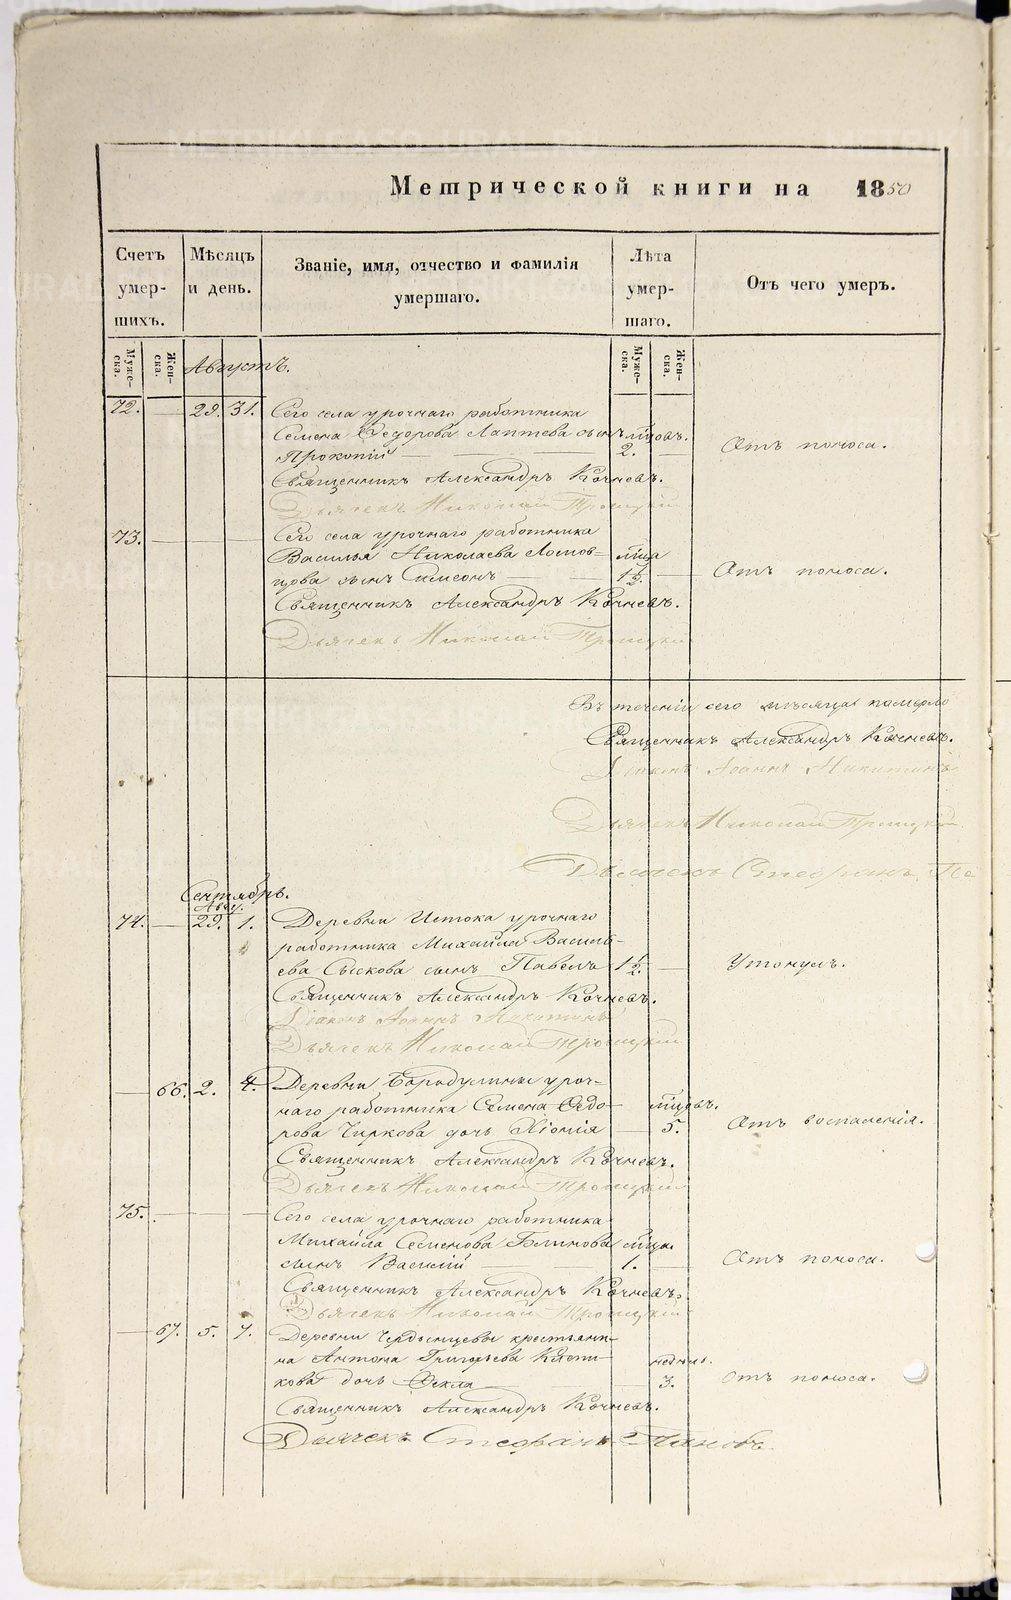 Метрической книги на 1850
Счетъ умер-шихъ.
Мѣсяцъ и день.
Званіе, имя, отчество и фамилія умершаго.
Лѣта умер-шаго.
Отъ чего умеръ.
Муже-ска.
Жен-ска.
Муже-ска.
Жен-ска.
Августъ.
72. — 29. 31. Сего села урочнаго работника
Семена Ѳедорова Лаптева сынъ мцовъ.
Прокопій — 2. — Отъ поноса.
Священникъ Александръ Кочневъ.
Дьячекъ Николай Троицкій
73. — Сего села урочнаго работника
Василья Николаева Ломов- мца
цова сынъ Симеонъ — 1½. — Отъ поноса.
Священникъ Александръ Кочневъ.
Дьячекъ Николай Троицкій
Въ теченіи сего мѣсяца померло
Священникъ Александръ Кочневъ.
Діаконъ Іоаннъ Никитинъ
Дьячекъ Николай Троицкій
Дьячекъ Стефанъ Па
Сентябрь.
Авгу.
74. — 29. 1. Деревни Истока урочнаго
работника Михайла Василь-
ева Сыскова сынъ Павелъ 1½. — Утонулъ.
Священникъ Александръ Кочневъ.
Діаконъ Іоаннъ Никитинъ
Дьячекъ Николай Троицкій
— 66. 2. 4. Деревни Бородулины уроч-
наго работника Семена Ѳедо- мцовъ.
рова Чиркова дочь Хіонія — 5. Отъ воспаленія.
Священникъ Александръ Кочневъ.
Дьячекъ Николай Троицкій
75. — Сего села урочнаго работника
Михайла Семенова Блинова мца
сынъ Василій — 1. — Отъ поноса.
Священникъ Александръ Кочневъ.
Дьячекъ Николай Троицкій
— 67. 5. 7. Деревни Чердынцевы крестьяни-
на Антона Григорьева недѣль.
кова дочь Ѳекла — 3. Отъ поноса.
Священникъ Александръ Кочневъ.
Дьячекъ Стефанъ Пановъ.
METRIKI.GASO-URAL.RU